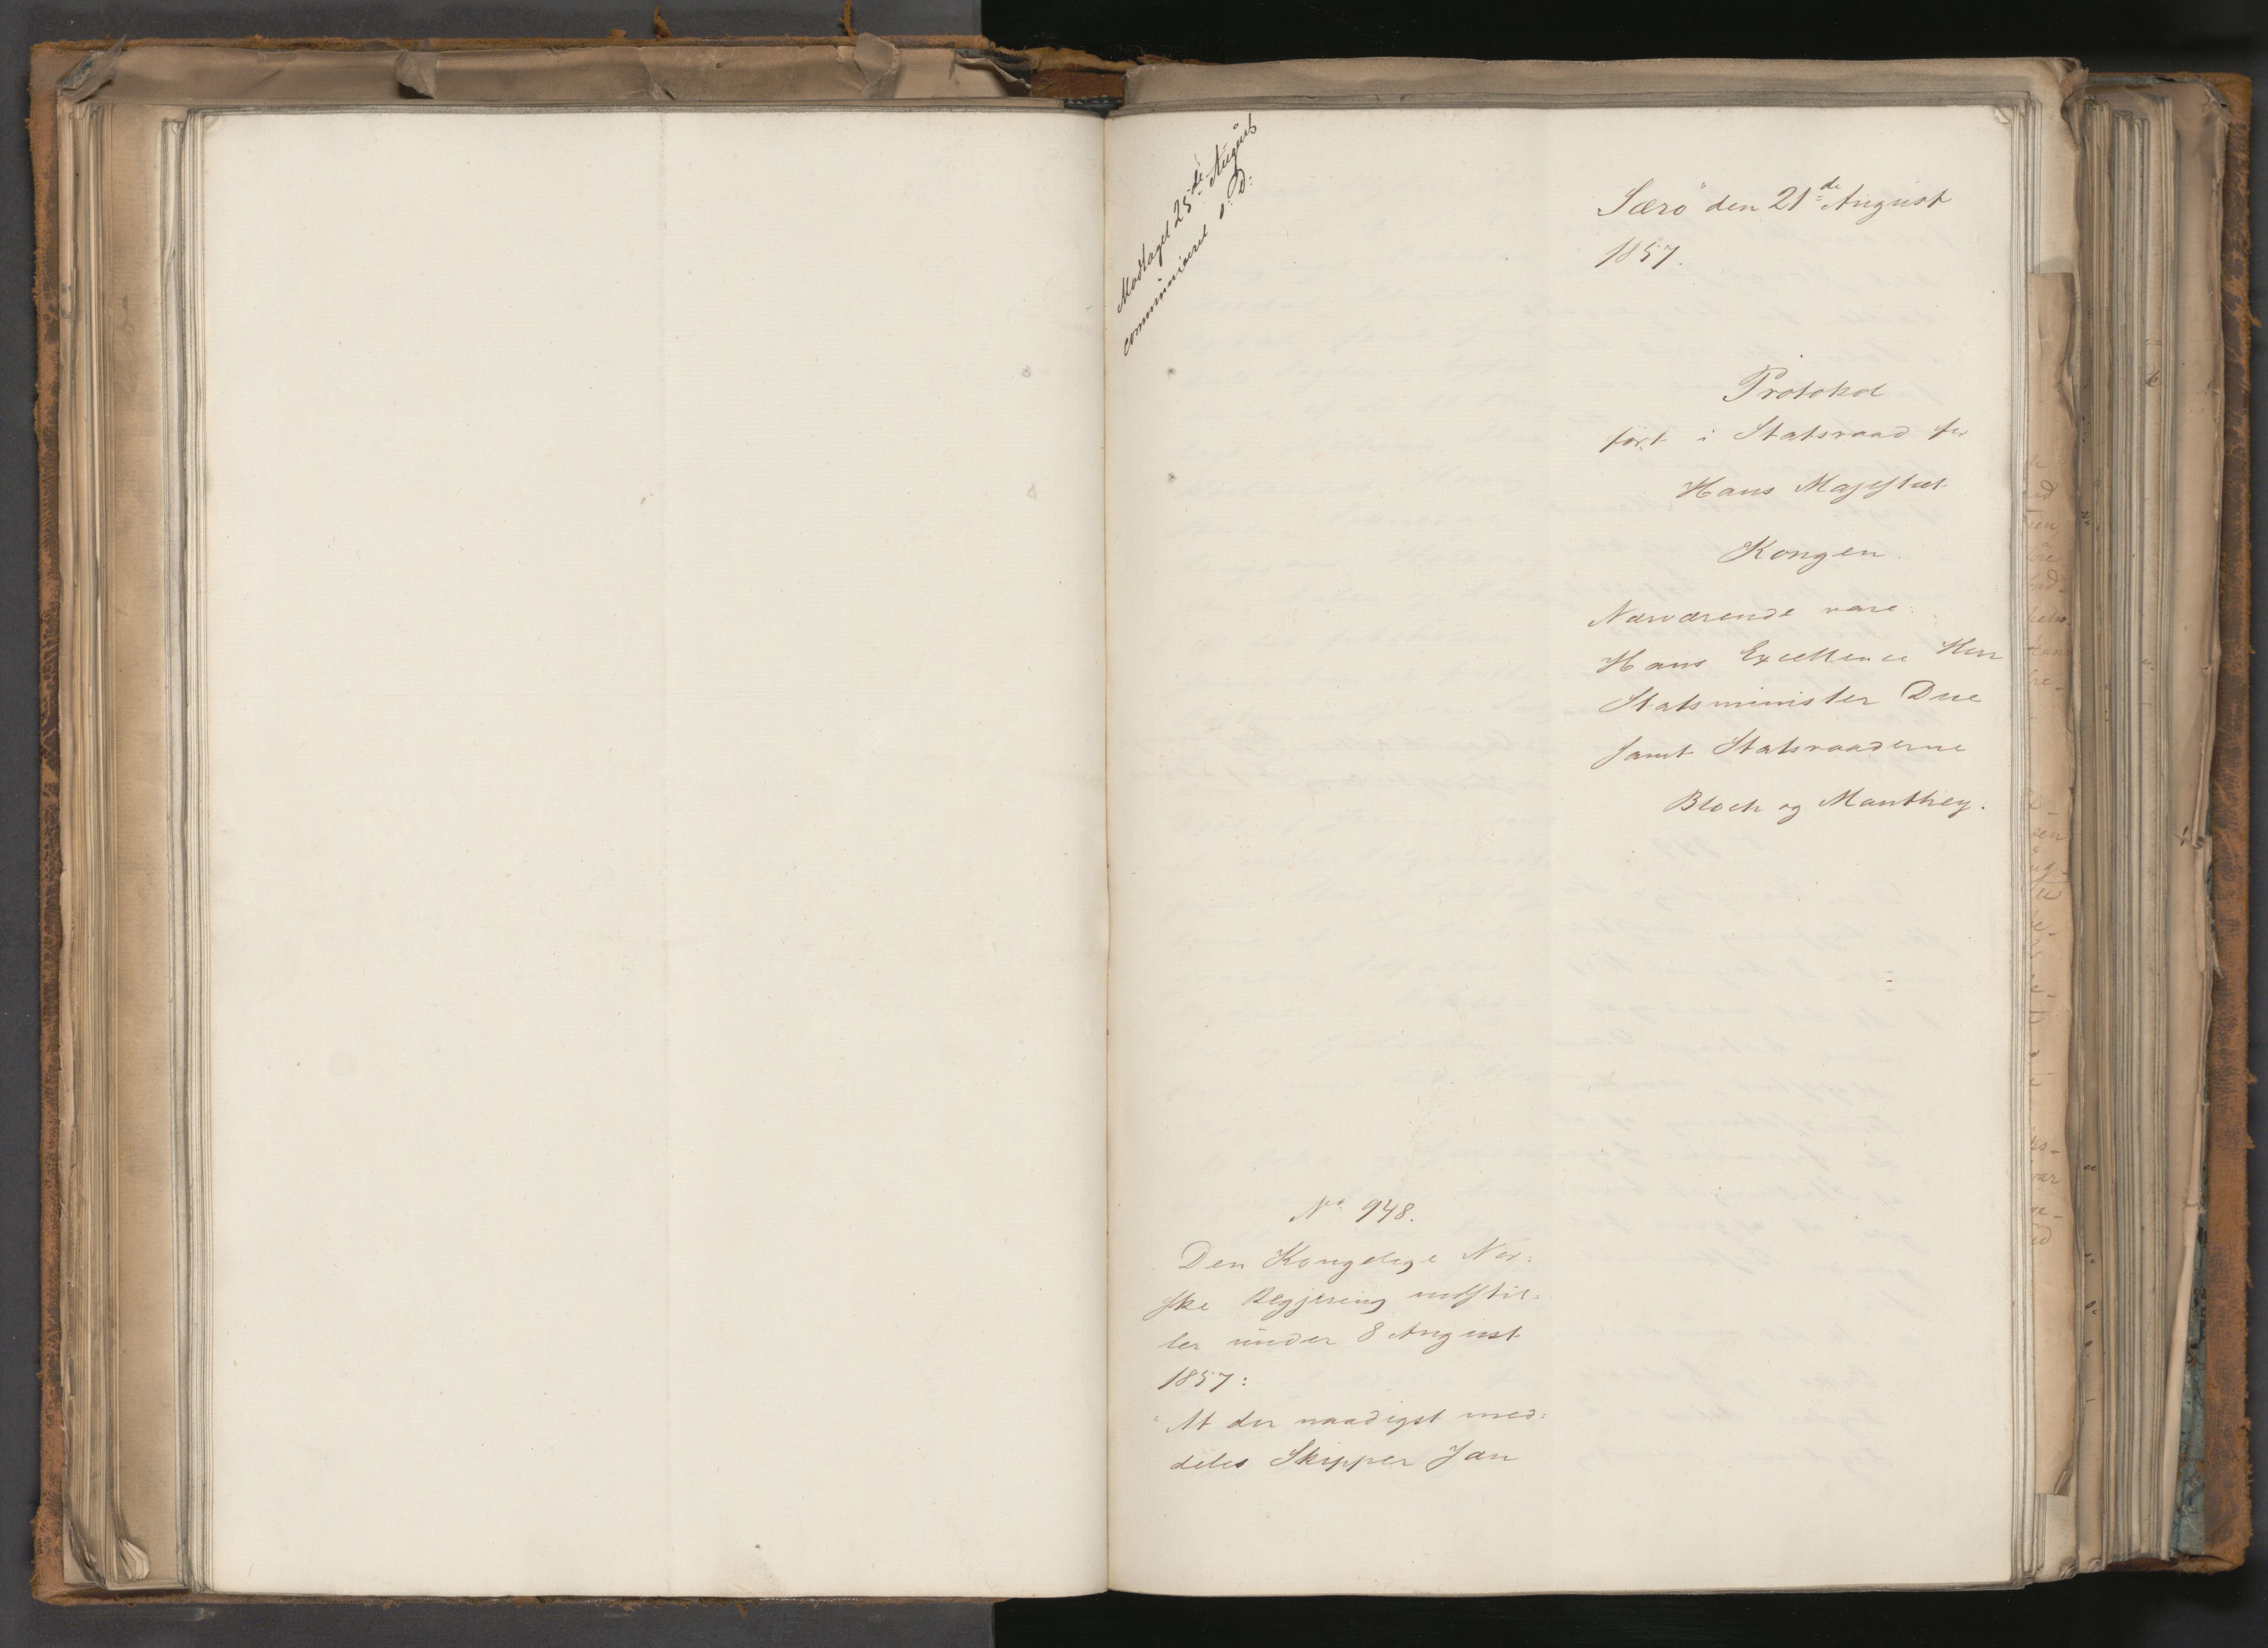 Modtaget 25de August
communiceret s. D:
Særö den 21de August
1857.
Protokol
ført i Statsraad for
Hans Majestæt
Kongen
Nærværende vare:
Hans Excellence Herr
Statsminister Due
samt Statsraaderne
Bloch og Manthey.
No 948.
Den Kongelige Nor:
ske Regjering indstil:
ler under 8 August
1857:
"At der naadigst med:
deles Skipper Jan